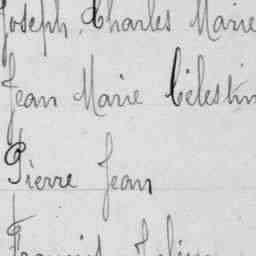 Joseph Charles Marie
Jean Marie Célestin
Pierre Jean
François Julien